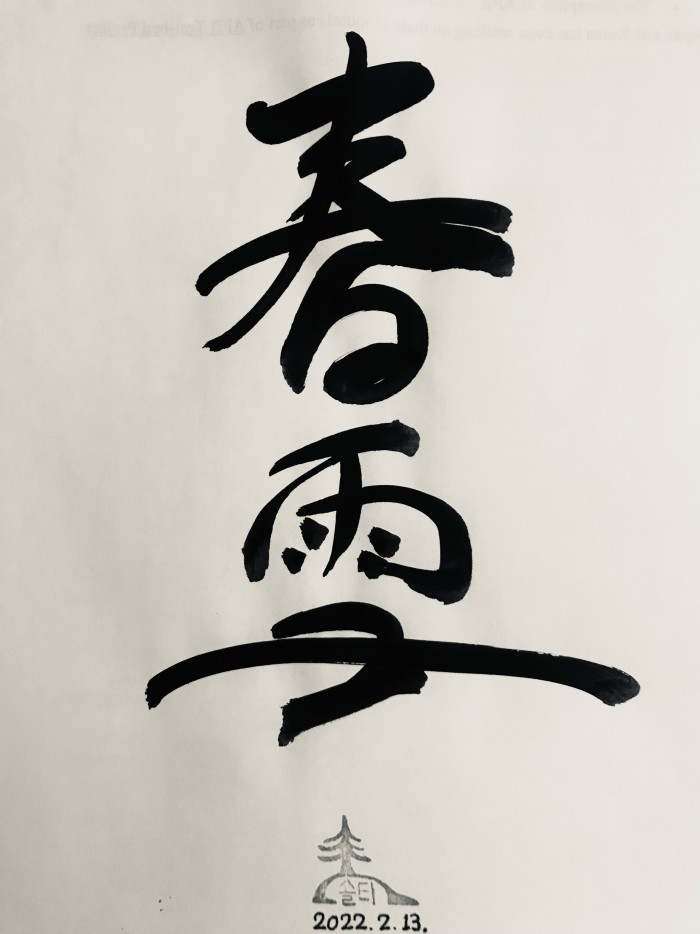 春
雪
솔티
2022.2.13.